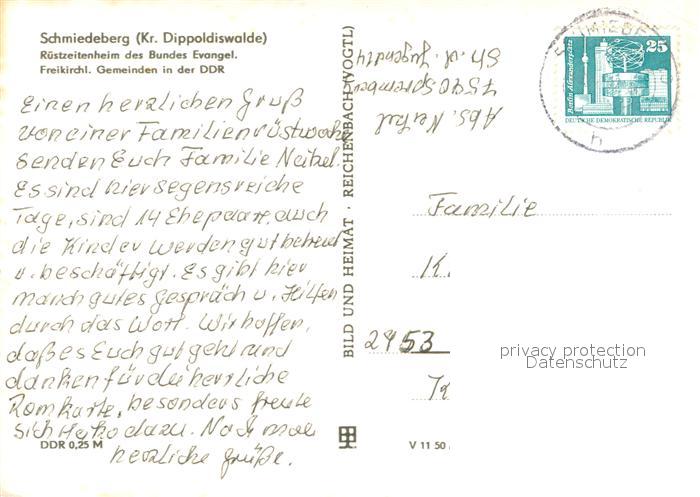 Schmiedeberg (Kr. Dippoldiswalde)
Rüstzeitenheim des Bundes Evangel.
Freikirchl. Gemeinden in der DDR
Einen herzlichen Gruß
von einer Familienrüstwoche
senden Euch Familie Neitzel.
Es sind hier segensreiche
Tage, sind 14 Ehepaare, auch
die Kinder werden gut betreut
u. beschäftigt. Es gibt hier
manch gutes Gespräch u. Hilfen
durch das Wort. Wir hoffen,
daß es Euch gut geht und
danken für die herrliche
Romkarte, besonders freute
sich dazu. Noch mal
herzliche Grüße.
DDR 0,25 M
BILD UND HEIMAT · REICHENBACH (VOGTL)
Abs.
7590 Spremberg
V 11 50
25
Berlin, Alexanderplatz
DEUTSCHE DEMOKRATISCHE REPUBLIK
h
Familie
K.
2453
privacy protection
Datenschutz